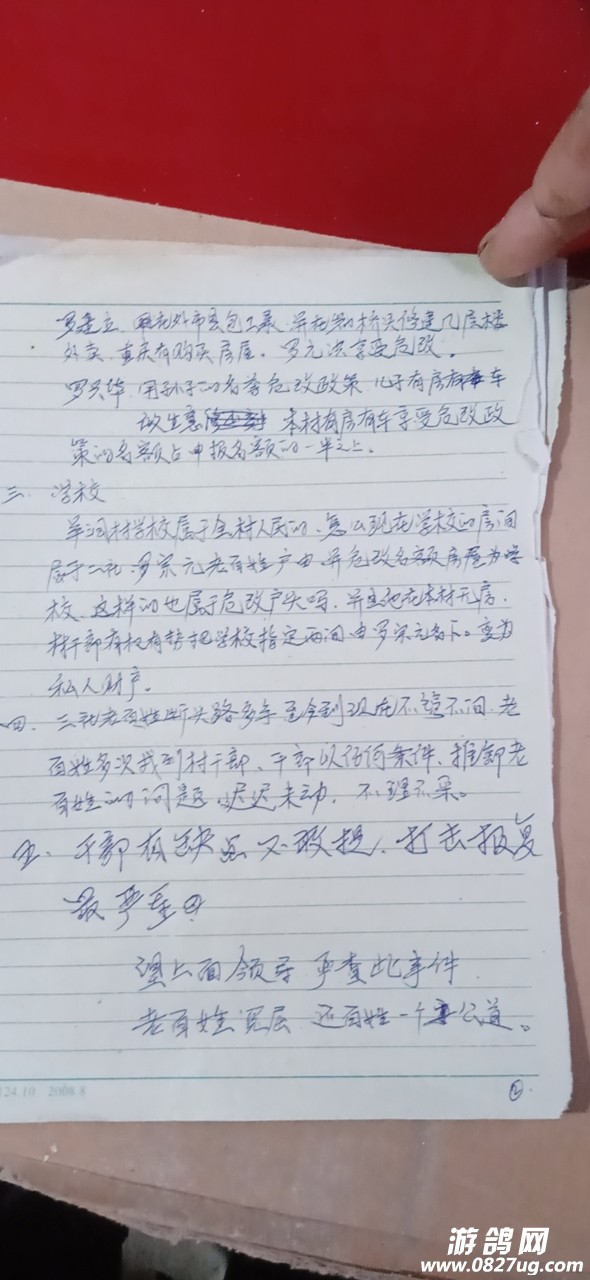 罗建立 在外市承包工程 并在 桥头修建几层楼
外卖 重庆有购买房屋。罗元洪享受危改。
罗兴华 用孙子的名享危改政策 儿子有房有车
做生意 本村有房有车享受危改政
策的名额占申报名额的一半之上。
三. 学校
村学校属于全村人民的、怎么现在学校的房间
属于二社 罗宗元老百姓户由 并危改名额房屋为学
校、这样的也属于危改户头吗 并且他在本村无房.
村干部有权有势把学校指定两间由罗宗元名下。变为
私人财产。
四. 三社老百姓断头路多年至今到现在不管不问.老
百姓多次找到村干部、干部以任何条件、推卸老
百姓的问题、迟迟未动、不理不采。
五. 干部有缺点不敢提、打击报复
最严重
望上面领导 严查此事件
老百姓 层 还百姓一个公道。
124.10 2008.8
②.
游鸽网
www.0827ug.com